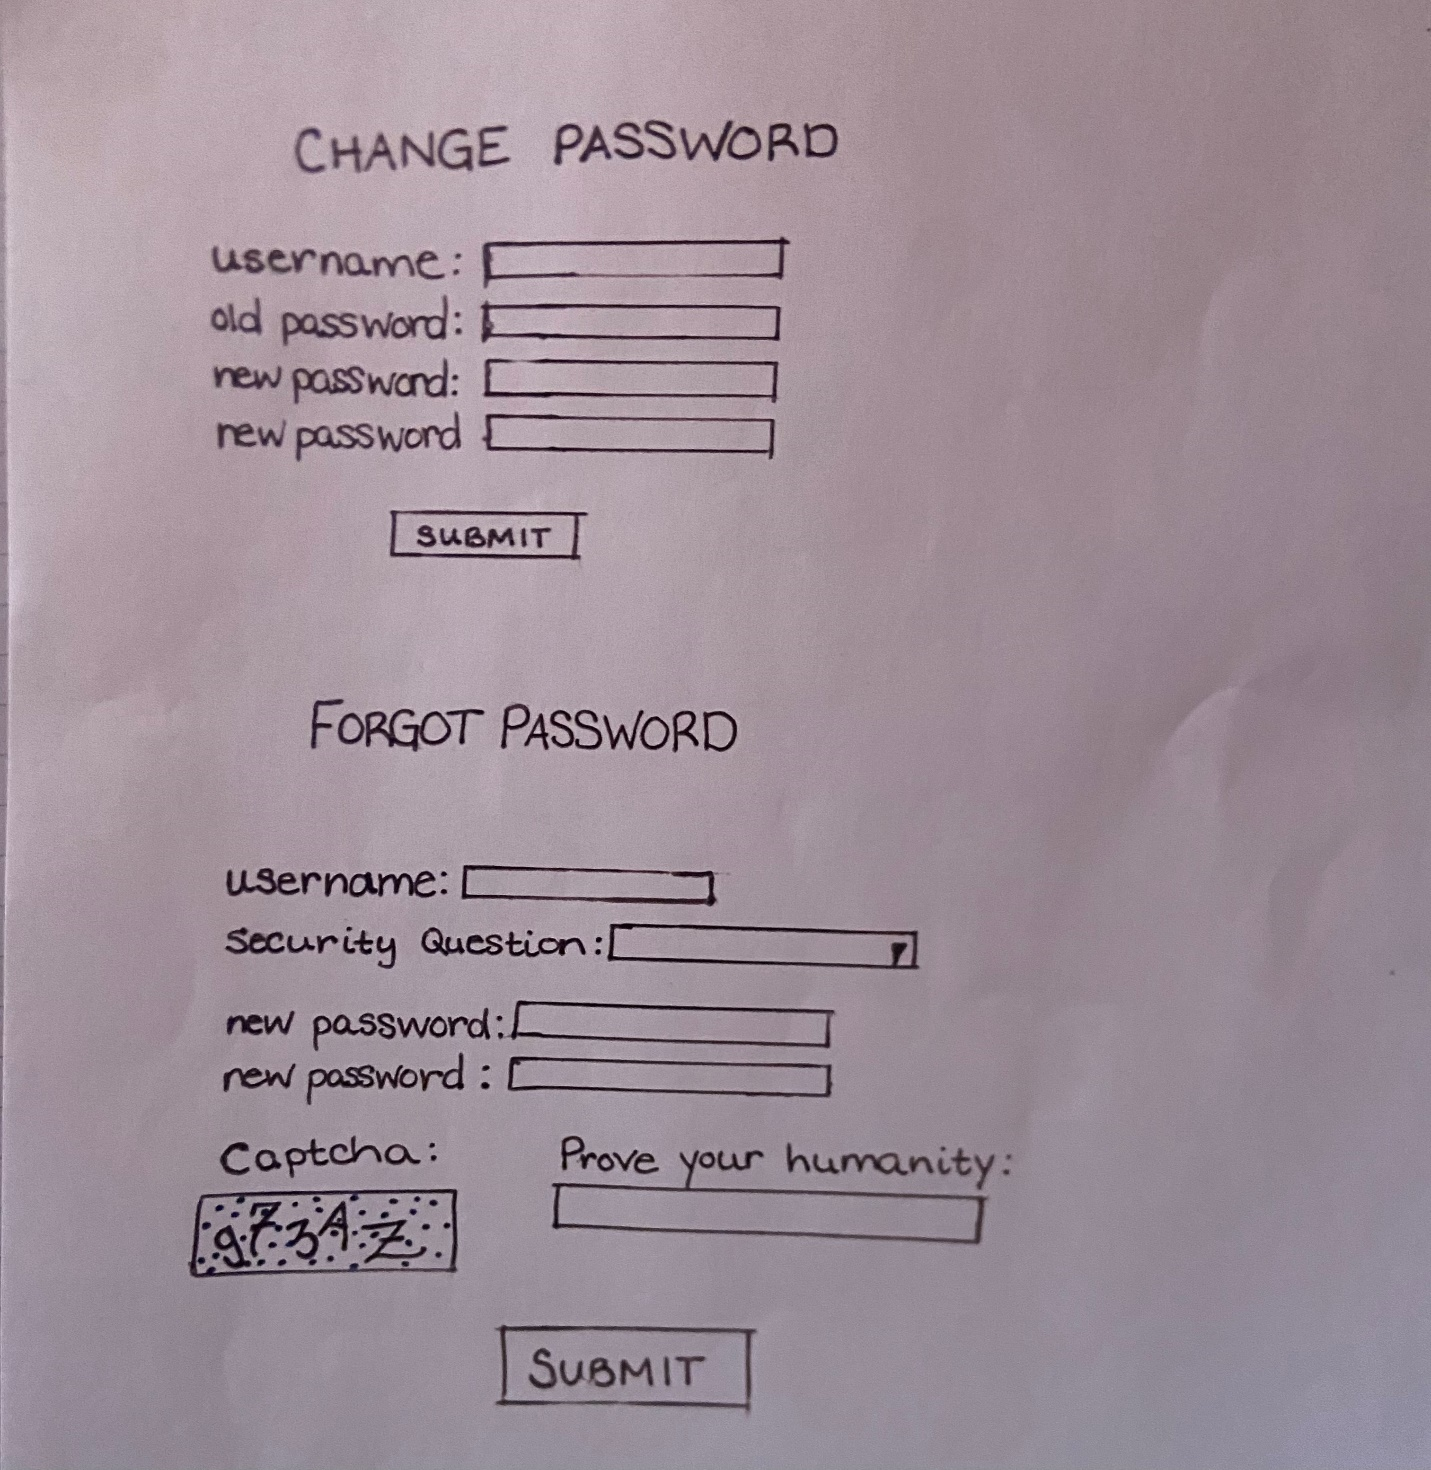 CHANGE PASSWORD
username:
old password:
new password:
new password
SUBMIT
FORGOT PASSWORD
username:
Security Question:
new password:
new password:
Captcha: Prove your humanity:
g73AZ
SUBMIT